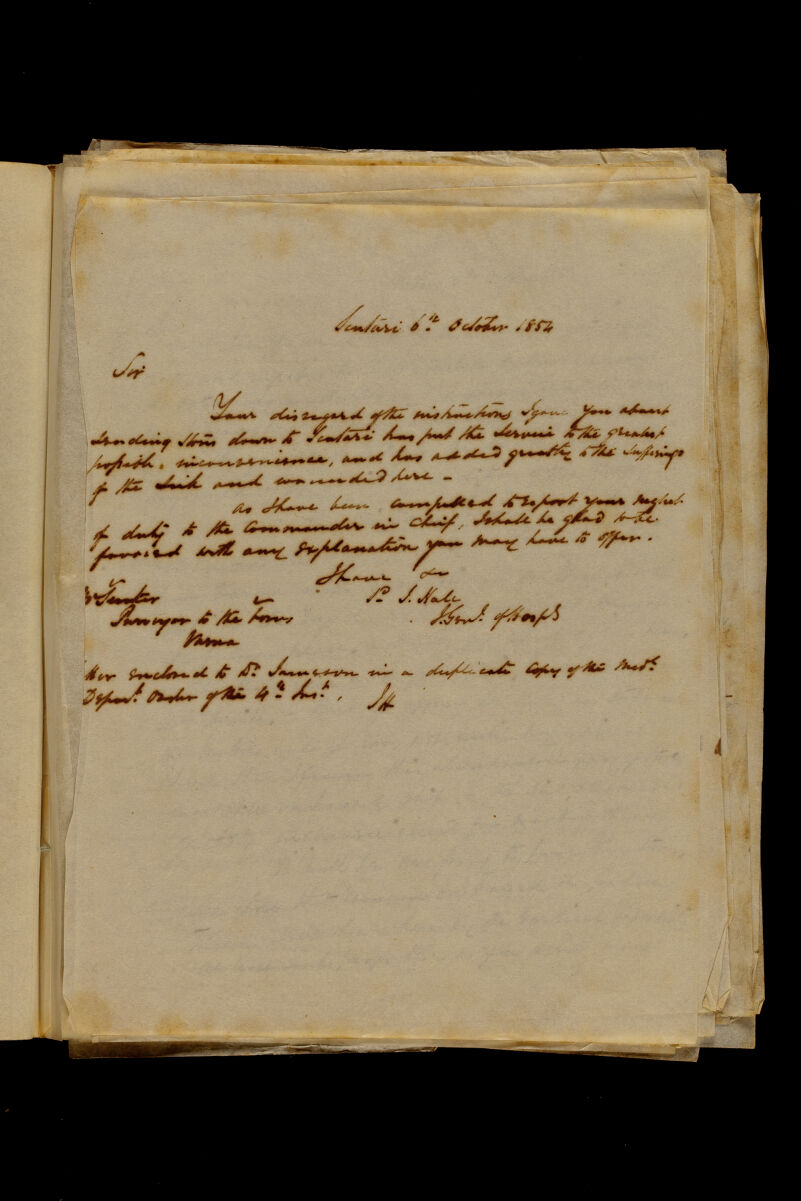 Scutari 6th October 1854
Sir
Your disregard of the instructions I gave you about
sending Stores down to Scutari has put the Service to the greatest
possible inconvenience, and has added greatly to the sufferings
of the Sick and wounded here -
As I have been compelled to report your neglect
of duty to the Commander in Chief, I shall be glad to be
favored with any explanation you may have to offer.
I have &c
Sd J. Hall
I. Genl. of Hospls
Purveyor to the Forces
Varna
enclosed to Dr. Jameson in a duplicate copy of the Medl.
Depart. Order of the 4th Inst.
JH